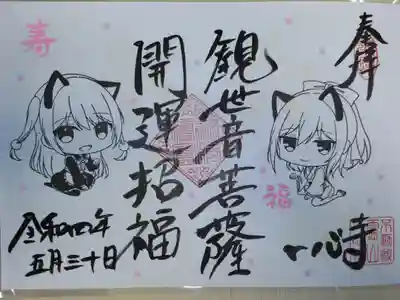 奉拝
観世音菩薩
開運招福
一心寺
令和四年
五月三十日
寿
福